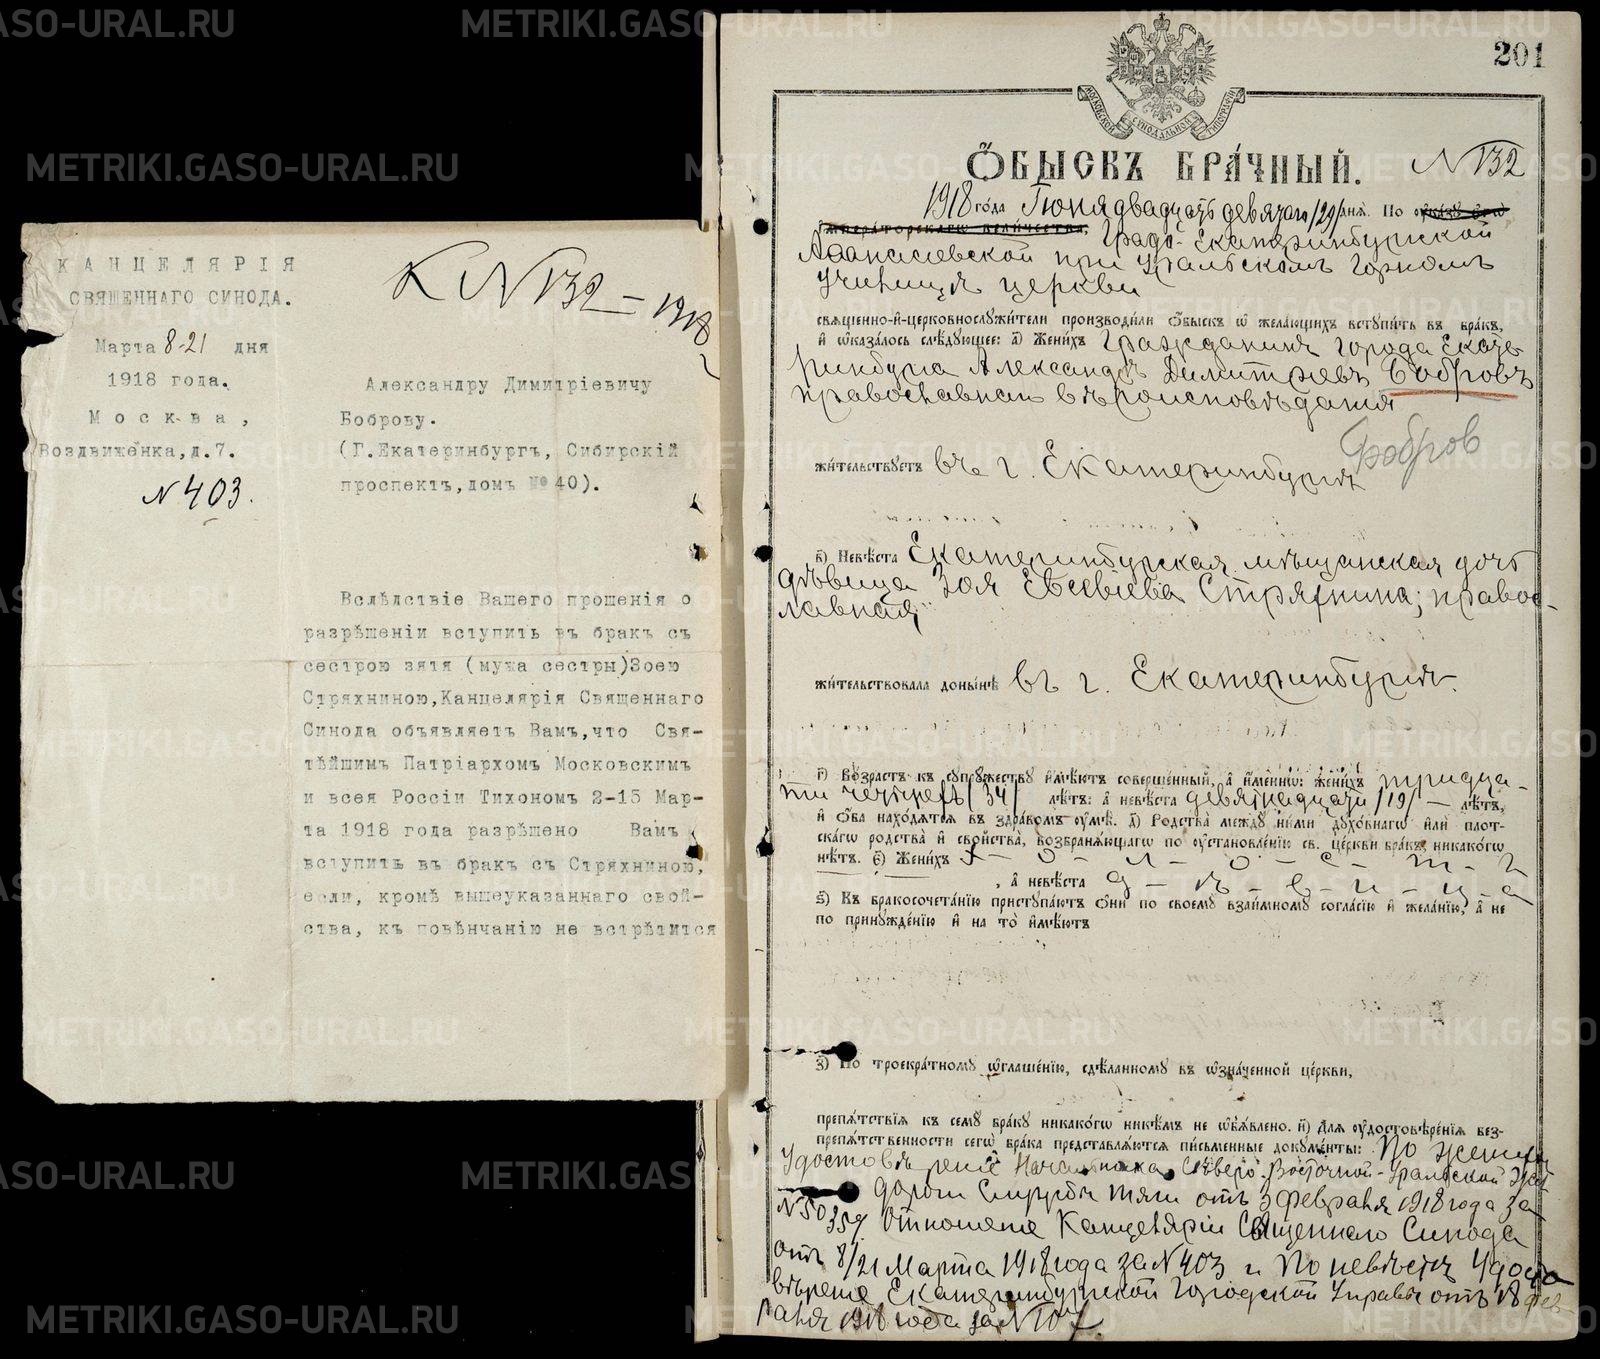 КАНЦЕЛЯРІЯ
СВЯЩЕННАГО СИНОДА.
Марта 8-21 дня
1918 года.
Москва,
Воздвиженка, д. 7.
N 403.
К N 132 - 1918
Александру Димитріевичу
Боброву.
(Г.Екатеринбургъ, Сибирскій
проспектъ, домъ № 40).
Вслѣдствіе Вашего прошенія о
разрѣшеніи вступить въ бракъ съ
сестрою зятя (мужа сестры) Зоею
Стряхниною, Канцелярія Священнаго
Синода объявляетъ Вамъ, что Свя-
тѣйшимъ Патріархомъ Московскимъ
и всея Россіи Тихономъ 2-15 Мар-
та 1918 года разрѣшено Вамъ
вступить въ бракъ съ Стряхниною,
если, кромѣ вышеуказаннаго свой-
ства, къ повѣнчанію не встрѣтится
201
МОСКОВСКОЙ СѴНОДАЛЬНОЙ ТИПОГРАФІИ
Ѻ҆БЫСКЪ БРА́ЧНЫЙ. N 132
1918 го́да Іюня двадцать девятаго /29/ дня̀. По ᲂу҆ка́зꙋ є҆гѡ̀
І҆мпера́торскагѡ вели́чества, Градо-Екатеринбургской
Аѳанасіевской при Уральскомъ горномъ
училищѣ церкви
свяще́нно-и҆-церковнослꙋжи́тели производи́ли ѻ҆́быскъ ѡ҆ жела́ющихъ встꙋпи́ть въ бра́къ,
и҆ ѡ҆каза́лось слѣ́дꙋющее: а҃) Жени́хъ Гражданинъ города Екате-
ринбурга Александръ Димитріевъ Бобровъ
православнаго вѣроисповѣданія
Бобров
жи́тельствꙋетъ въ г. Екатеринбургѣ
в҃) Невѣ́ста Екатеринбургская мѣщанская дочь
дѣвица Зоя Евсевіева Стряхнина; правос-
лавная,
жи́тельствовала доны́нѣ въ г. Екатеринбургѣ.
г҃) Во́зрастъ къ сꙋпрꙋ́жествꙋ и҆мѣ́ютъ соверше́нный, а҆ и҆́менно: жени́хъ тридца-
ти четырехъ /34/ лѣ́тъ: а҆ невѣ́ста девятнадцати /19/ — лѣ́тъ,
и҆ ѻ҆́ба нахо́дятся въ здра́вомъ ᲂу҆мѣ̀. д҃) Родства̀ междꙋ̀ ни́ми дꙋхо́внагѡ и҆лѝ пло́т-
скагѡ родства̀ и҆ сво́йства, возбраня́ющагѡ по ᲂу҆становле́нїю св. це́ркви бра́къ, никако́гѡ
нѣ́тъ. є҃) Жени́хъ х - о - л - о - с - т - ъ
, а҆ невѣ́ста д - ѣ - в - и - ц - а
ѕ҃) Къ бракосочета́нїю пристꙋпа́ютъ ѻ҆нѝ по своемꙋ̀ взаи́мномꙋ согла́сїю и҆ жела́нїю, а҆ не
по принꙋжде́нїю и҆ на то̀ и҆мѣ́ютъ
з҃) По троекра́тномꙋ ѡ҆глаше́нїю, сдѣ́ланномꙋ въ ѡ҆зна́ченной це́ркви,
препя́тствїя къ семꙋ̀ бра́кꙋ никако́гѡ никѣ́мъ не ѡ҆б̾ѧ́влено. и҃) Для ᲂу҆достовѣре́нїя без-
препя́тственности сегѡ̀ бра́ка представля́ются пи́сьменные докꙋме́нты: По женихѣ
Удостовѣреніе Начальника Сѣверо-Восточной-Уральской жел
дороги Службы тяги отъ 3 февраля 1918 года за
N 50357 Отношеніе Канцеляріи Священнаго Синода
отъ 8/21 Марта 1918 года за N 403 и по невѣстѣ Удосто
вѣреніе Екатеринбургской Городской Управы отъ 18 фев-
раля 1918 года за N 107.
METRIKI.GASO-URAL.RU